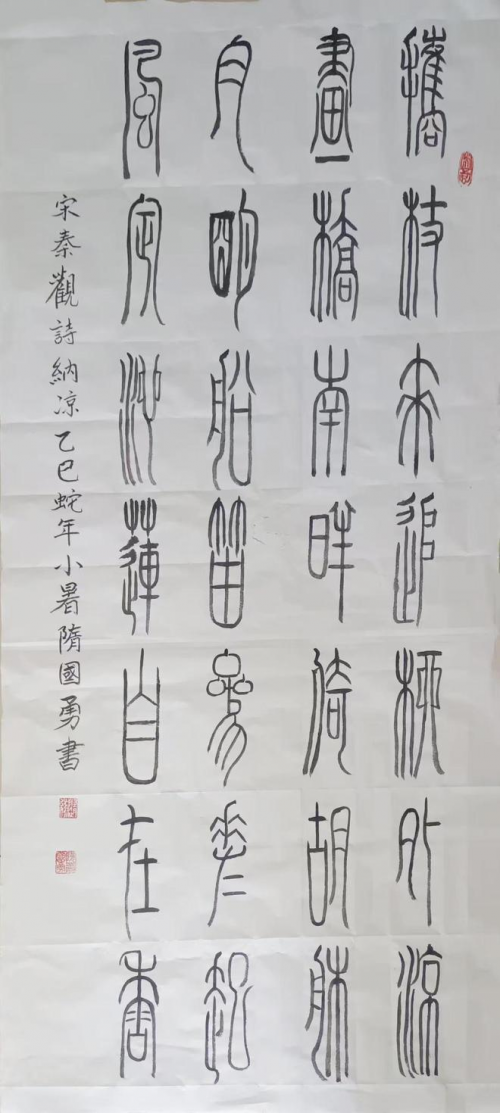 攜杖來追柳外涼
畫橋南畔倚胡牀
月明船笛參差起
風定池蓮自在香
宋秦觀詩納凉乙巳蛇年小暑隋國勇書